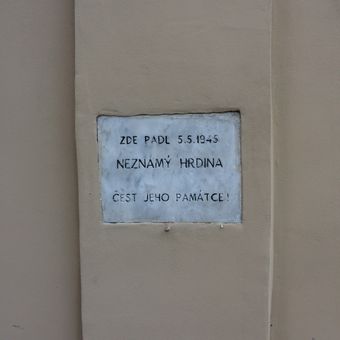 ZDE PADL 5.5.1945
NEZNÁMÝ HRDINA
ČEST JEHO PAMÁTCE!